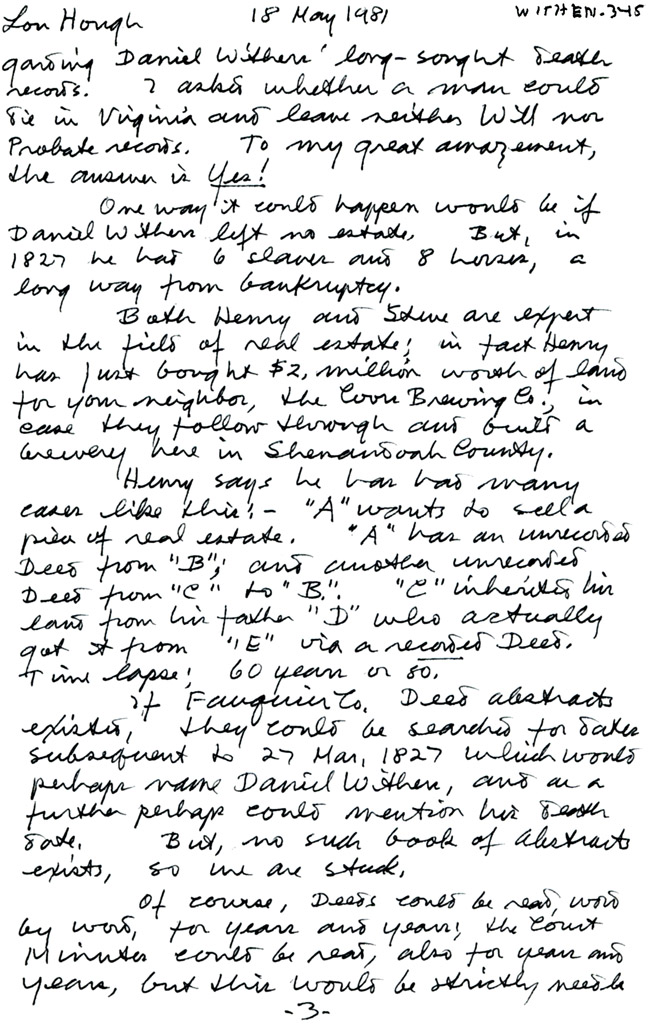 Lon Hough 18 May 1981 WITHEN.345
garding Daniel Withers' long-sought death
records. I asked whether a man could
die in Virginia and leave neither Will nor
Probate records. To my great amazement,
the answer is Yes!
One way it could happen would be if
Daniel Withers left no estate. But, in
1827 he had 6 slaves and 8 horses, a
long way from bankruptcy.
Both Henry and Steve are expert
in the field of real estate; in fact Henry
has just bought $2. million worth of land
for your neighbor, the Coors Brewing Co., in
case they follow through and build a
brewery here in Shenandoah County.
Henry says he has had many
cases like this:- "A" wants to sell a
piece of real estate. "A" has an unrecorded
Deed from "B"; and another unrecorded
Deed from "C" to "B." "C" inherited his
land from his father "D" who actually
got it from "E" via a recorded Deed.
Time lapse: 60 years or so.
If Fauquier Co. Deed abstracts
existed, they could be searched for dates
subsequent to 27 Mar, 1827 which would
perhaps name Daniel Withers, and as a
further perhaps could mention his death
date. But, no such book of abstracts
exists, so we are stuck.
Of course, Deeds could be read, word
by word, for years and years; the Court
Minutes could be read, also for years and
years, but this would be strictly needle
-3-